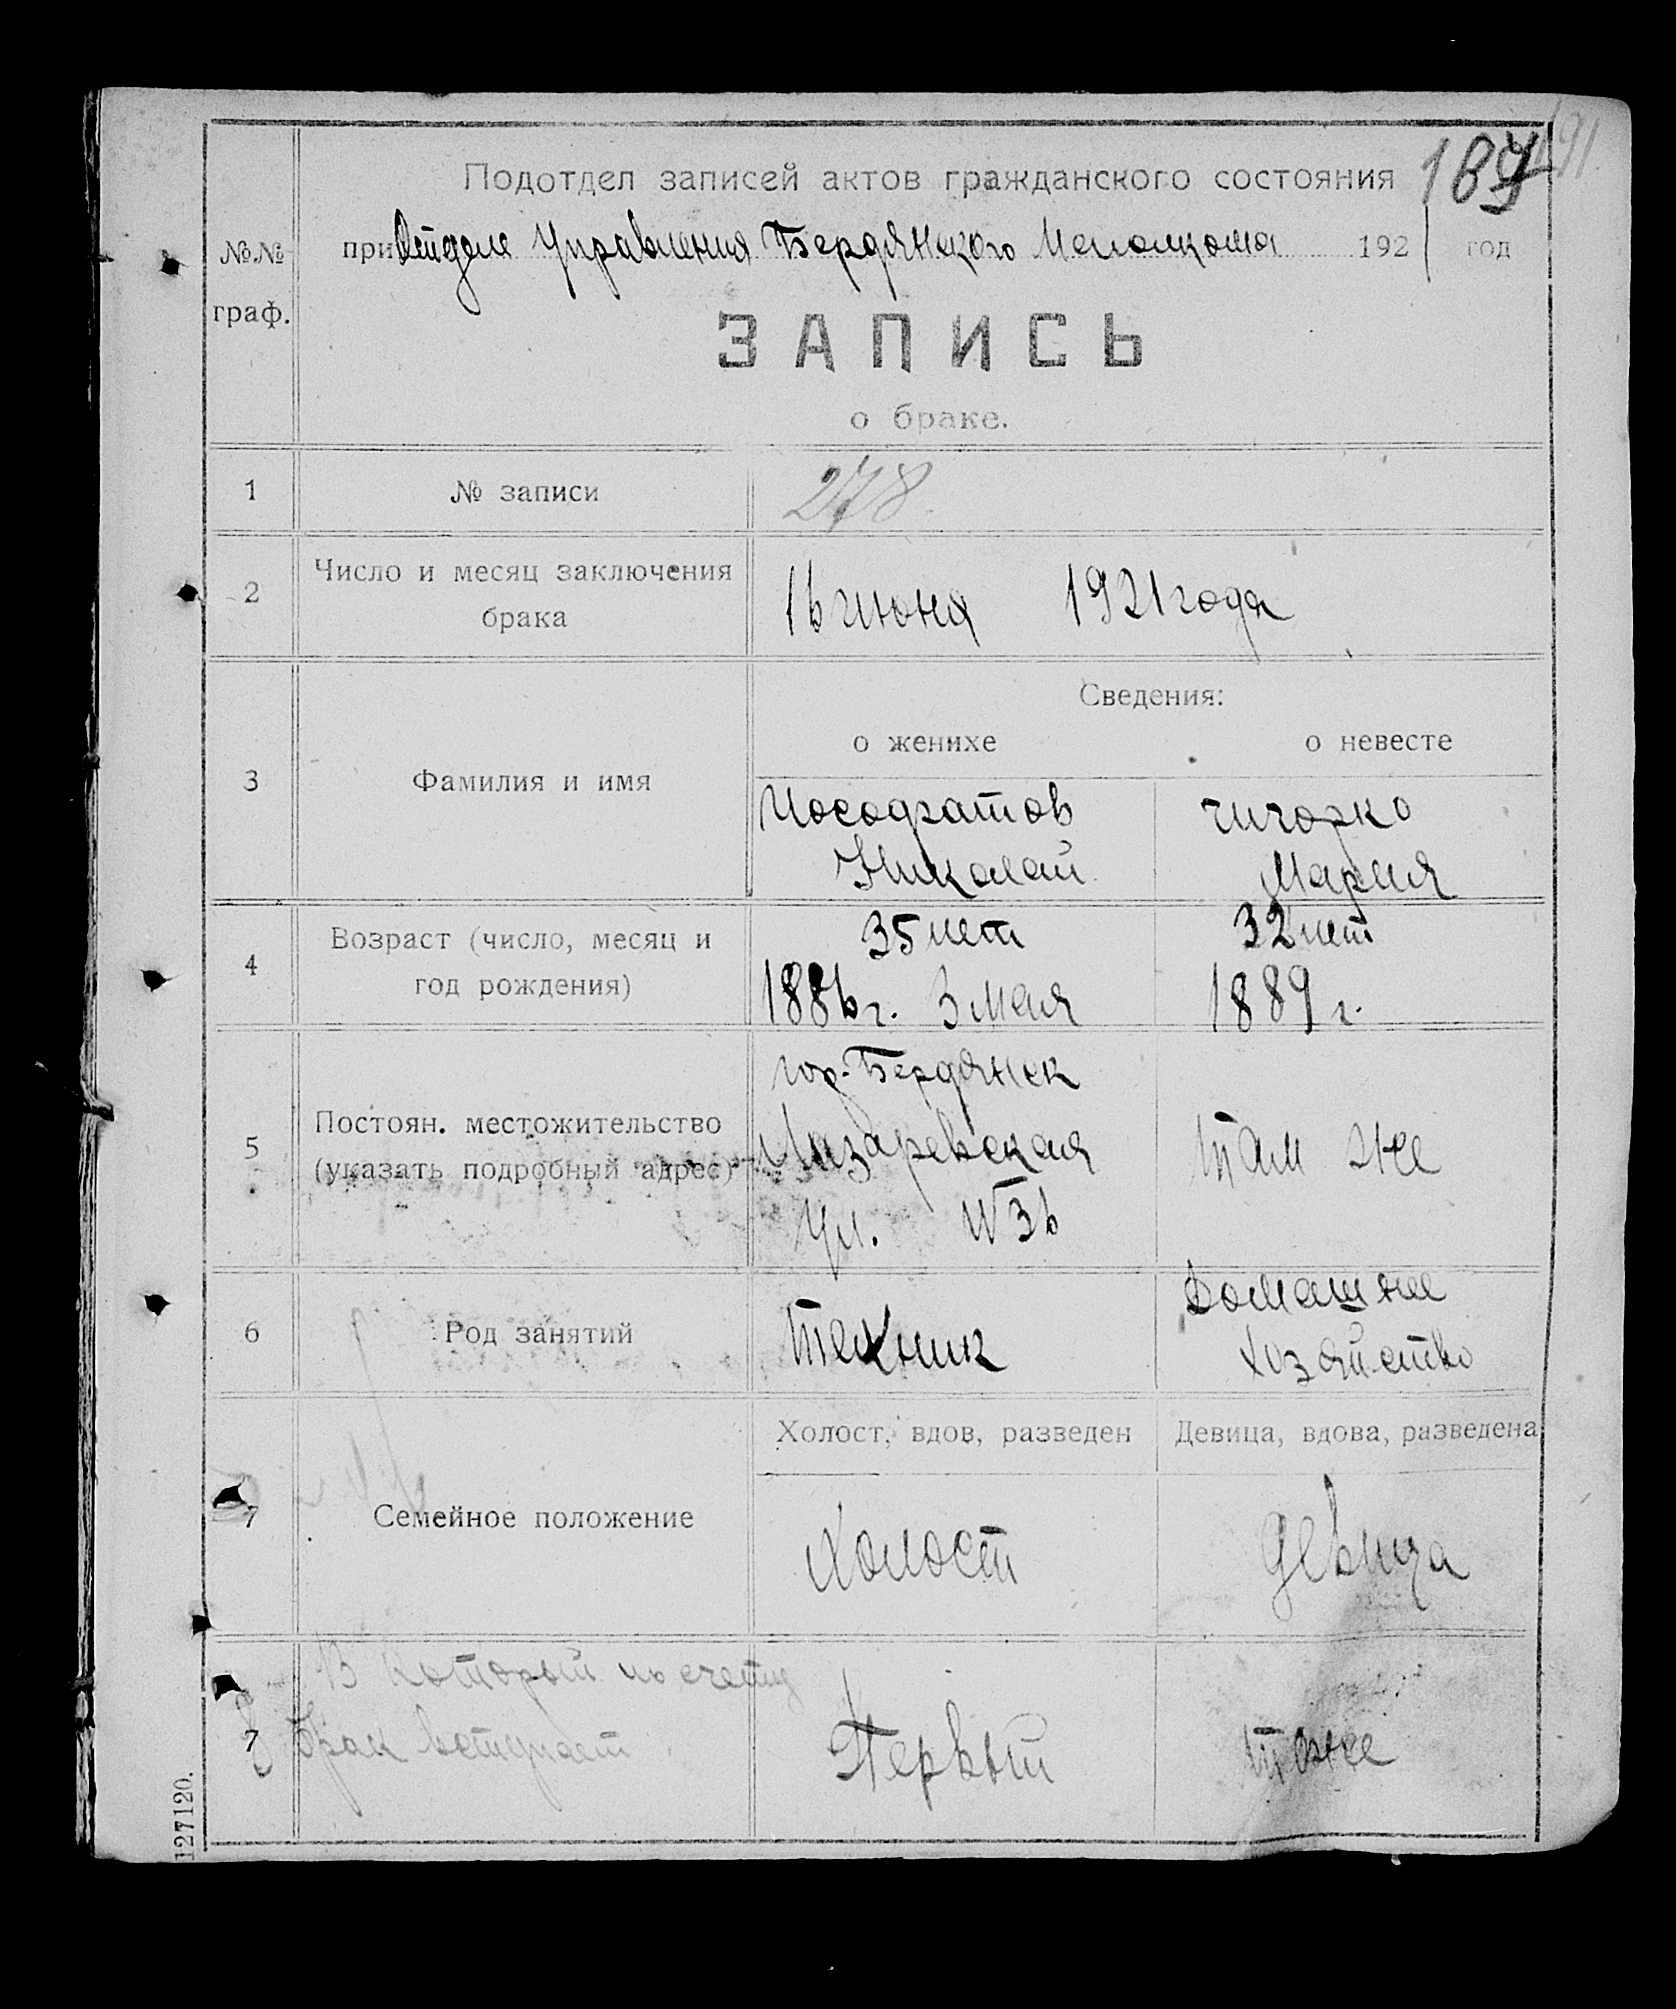 Подотдел записей актов гражданского состояния
187
191
№№ граф.
при Отделе Управления Бердянского Исполкома 1921 год
ЗАПИСЬ
о браке.
1 № записи 278.
2 Число и месяц заключения брака
16 июня 1921 года
Сведения:
о женихе о невесте
3 Фамилия и имя
Иософатов Чигорко
Николай Мария
4 Возраст (число, месяц и год рождения)
35 лет 32 лет
1886 г. 3 мая 1889 г.
5 Постоян. местожительство (указать подробный адрес)
гор. Бердянск
Лазаревская там же
ул. №36
6 Род занятий
техник Домашнее
хозяйство
Холост, вдов, разведен Девица, вдова, разведена
7 Семейное положение
холост девица
7 В который по счету
брак вступает
Первый тоже
127120.